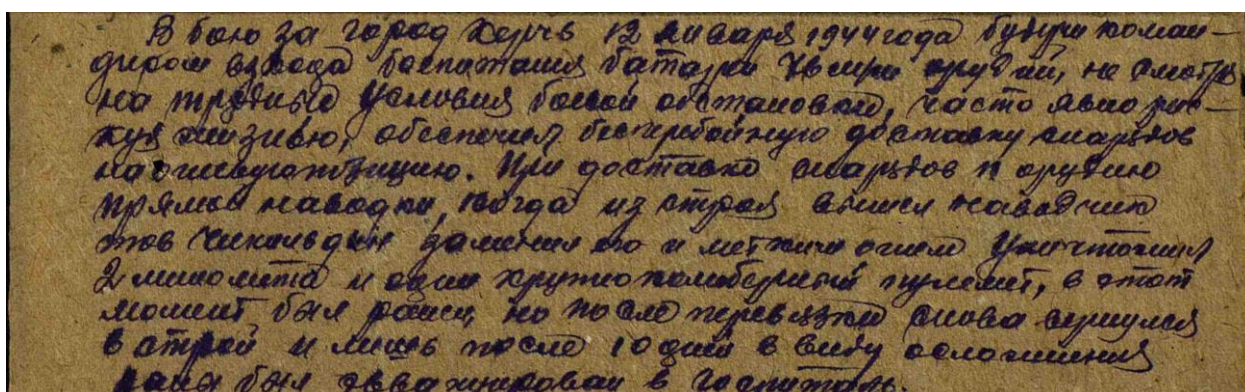 В бою за город Керчь 12 января 1944 года будучи коман-
диром взвода боепитания батареи 76 м.м. орудий, не смотря
на трудные условия боевой обстановки, часто явно рис-
куя жизнью, обеспечил бесперебойную доставку снарядов
на огневую позицию. При доставке снарядов к орудию
прямой наводки, когда из строя вышел наводчик
тов заменил его и метким огнем уничтожил
2 миномета и один крупнокалиберный пулемет, в этот
момент был ранен, но после перевязки снова вернулся
в строй и лишь после 10 дней в виду осложнения
раны был эвакуирован в госпиталь.